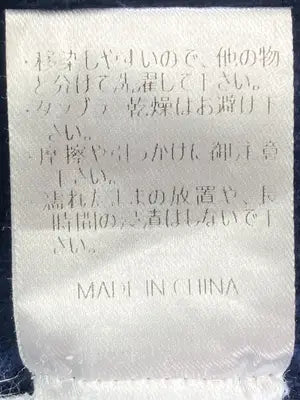 ・移染しやすいので、他の物
と分けて洗濯して下さい。
・タンブラー乾燥はお避け下
さい。
・摩擦や引っかけに御注意
下さい。
・濡れたままの放置や、長
時間の浸漬はしないで下
さい。
MADE IN CHINA